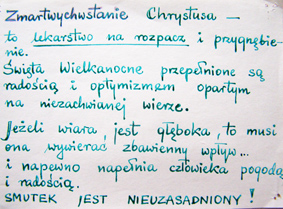 Zmartwychwstanie Chrystusa —
to lekarstwo na rozpacz i przygnębie-
nie.
Święta Wielkanocne przepełnione są
radością i optymizmem opartym
na niezachwianej wierze.
Jeżeli wiara, jest głęboka, to musi
ona wywierać zbawienny wpływ...
i napewno napełnia człowieka pogodą
i radością.
SMUTEK JEST NIEUZASADNIONY!